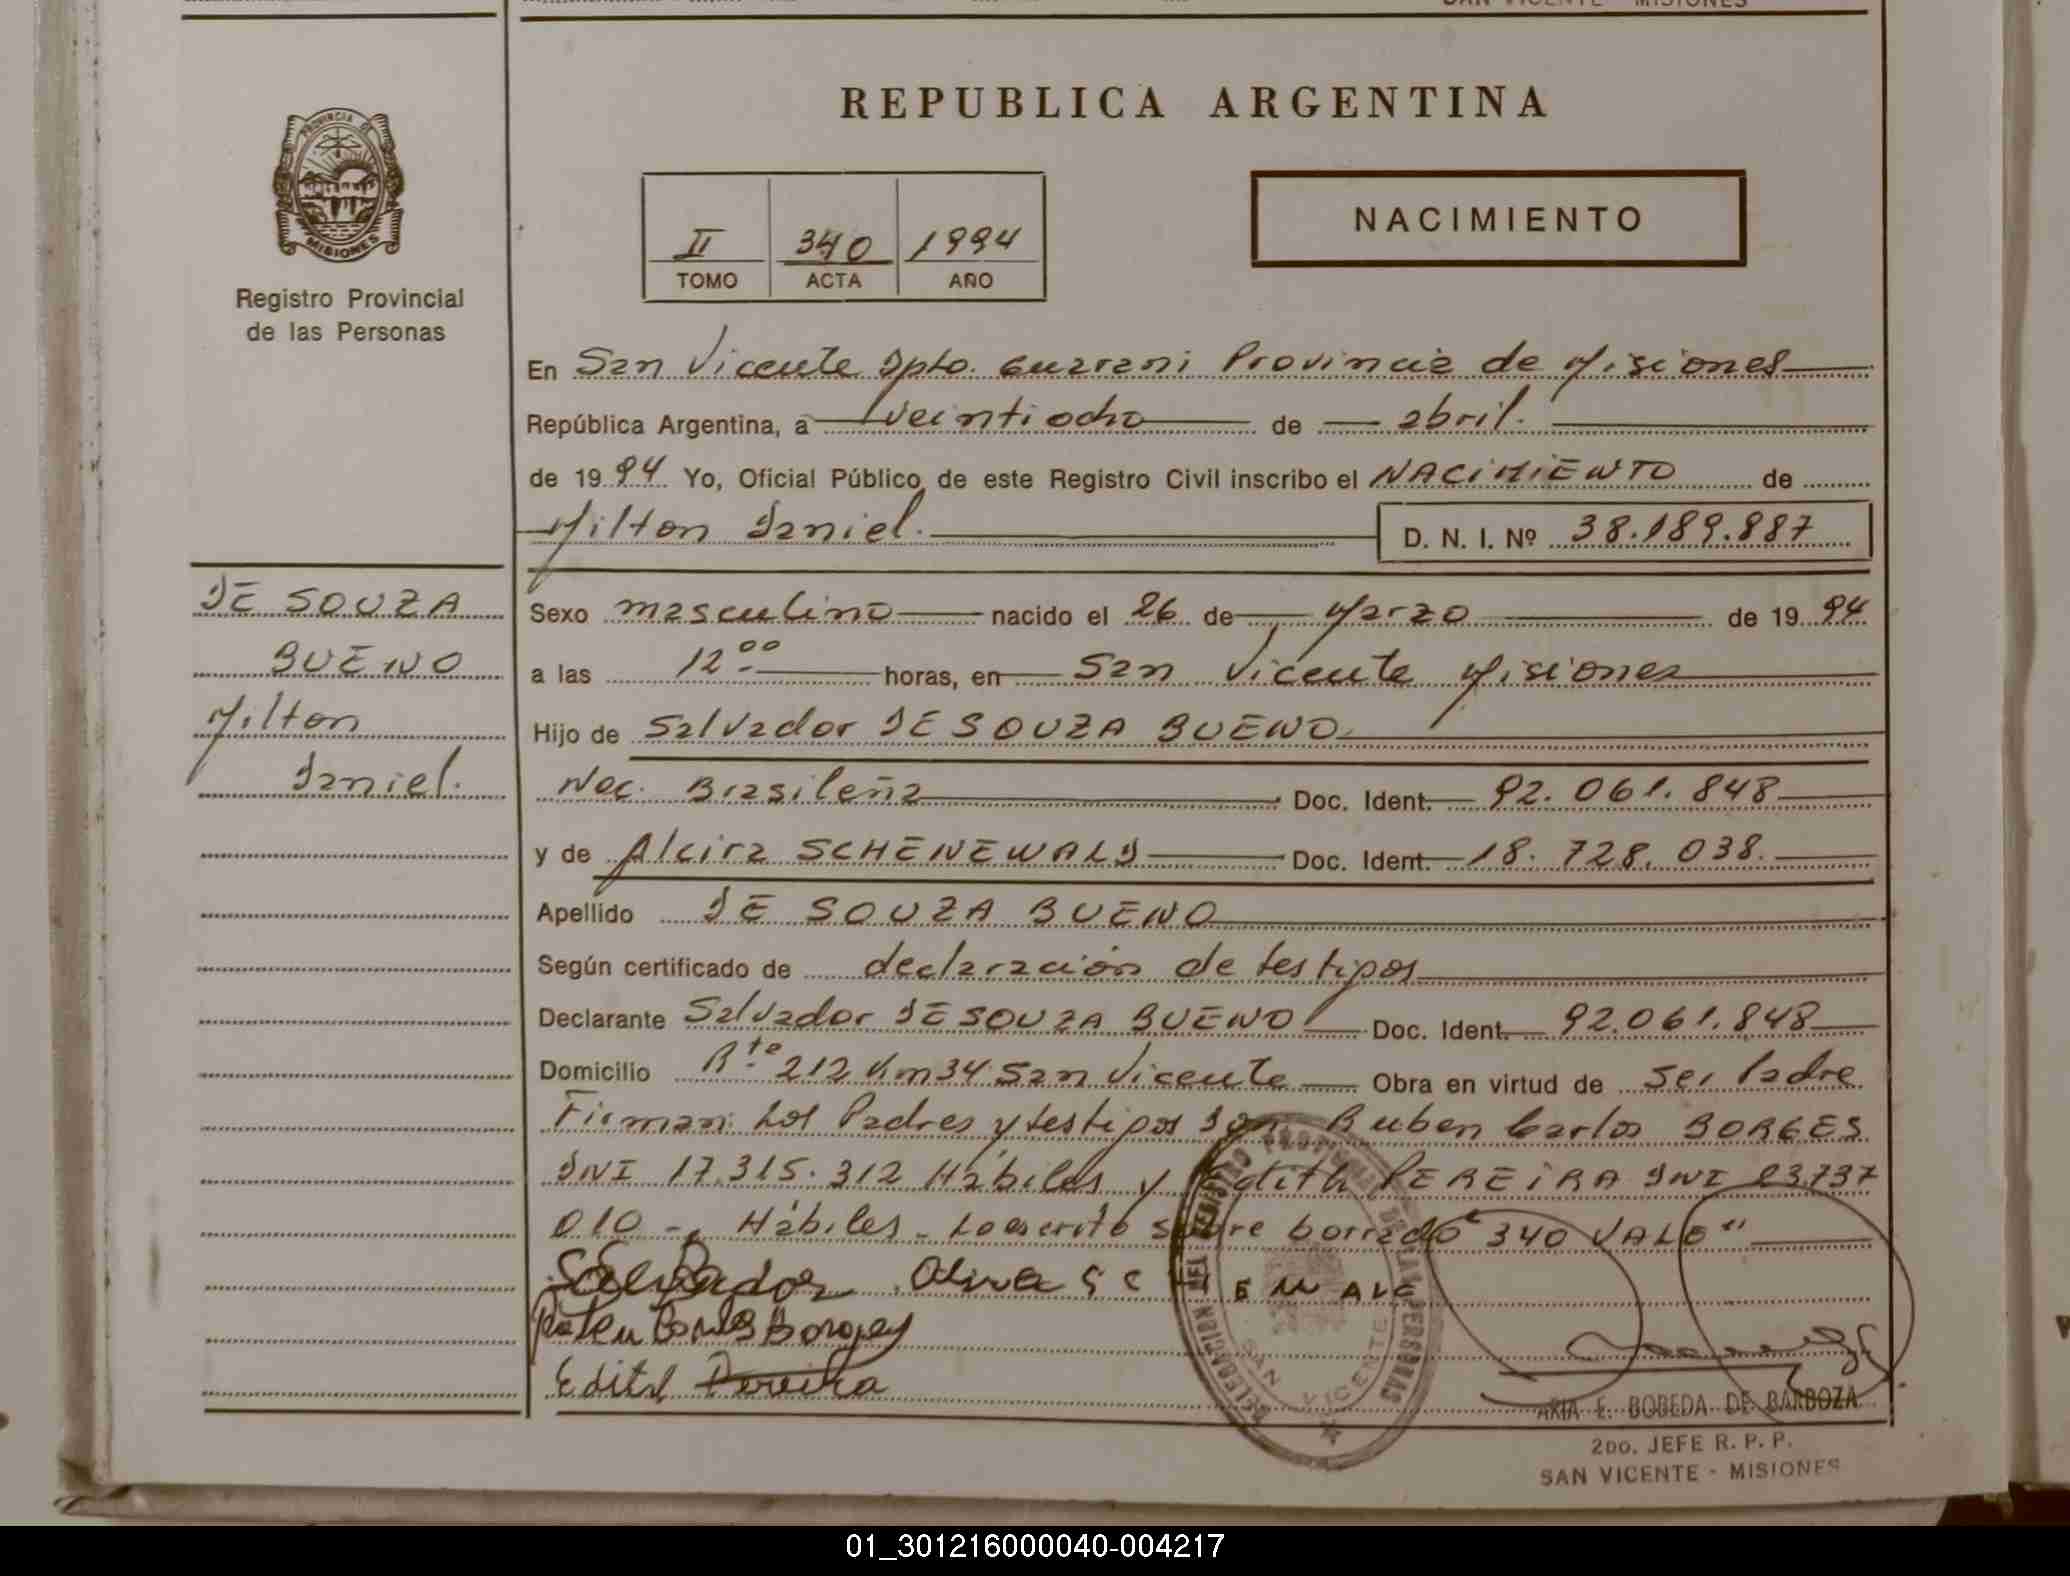 SAN VICENTE - MISIONES
PROVINCIA DE
MISIONES
Registro Provincial
de las Personas
REPUBLICA ARGENTINA
II 340 1994
TOMO ACTA AÑO
NACIMIENTO
En San Vicente Dpto. Guarani Provincia de Misiones
República Argentina, a veintiocho de abril.
de 1994 Yo, Oficial Público de este Registro Civil inscribo el NACIMIENTO de
Milton Daniel. D. N. I. Nº 38.189.887
DE SOUZA
BUENO
Milton
Daniel.
Sexo masculino nacido el 26 de Marzo de 1994
a las 12 00 horas, en San Vicente Misiones
Hijo de Salvador DE SOUZA BUENO
Nac. Brasileña Doc. Ident. 92.061.848
y de Alcira SCHENEWALD Doc. Ident. 18.728.038.
Apellido DE SOUZA BUENO
Según certificado de declaración de testigos
Declarante Salvador DE SOUZA BUENO Doc. Ident. 92.061.848
Domicilio Rta 212 Km 34 San Vicente Obra en virtud de ser Padre
Firman: Los Padres y testigos Don Ruben Carlos BORGES
DNI 17.315.312 Hábiles y Edith PEREIRA DNI 23737
010 -, Hábiles - Lo escrito sobre borrado "340 VALE"
Salvador
Edith Pereira
DELEGACION DEL REGISTRO PROVINCIAL DE LAS PERSONAS
SAN VICENTE
ARIA E. BOBEDA DE BARBOZA
2DO. JEFE R. P. P.
SAN VICENTE - MISIONES
01_301216000040-004217